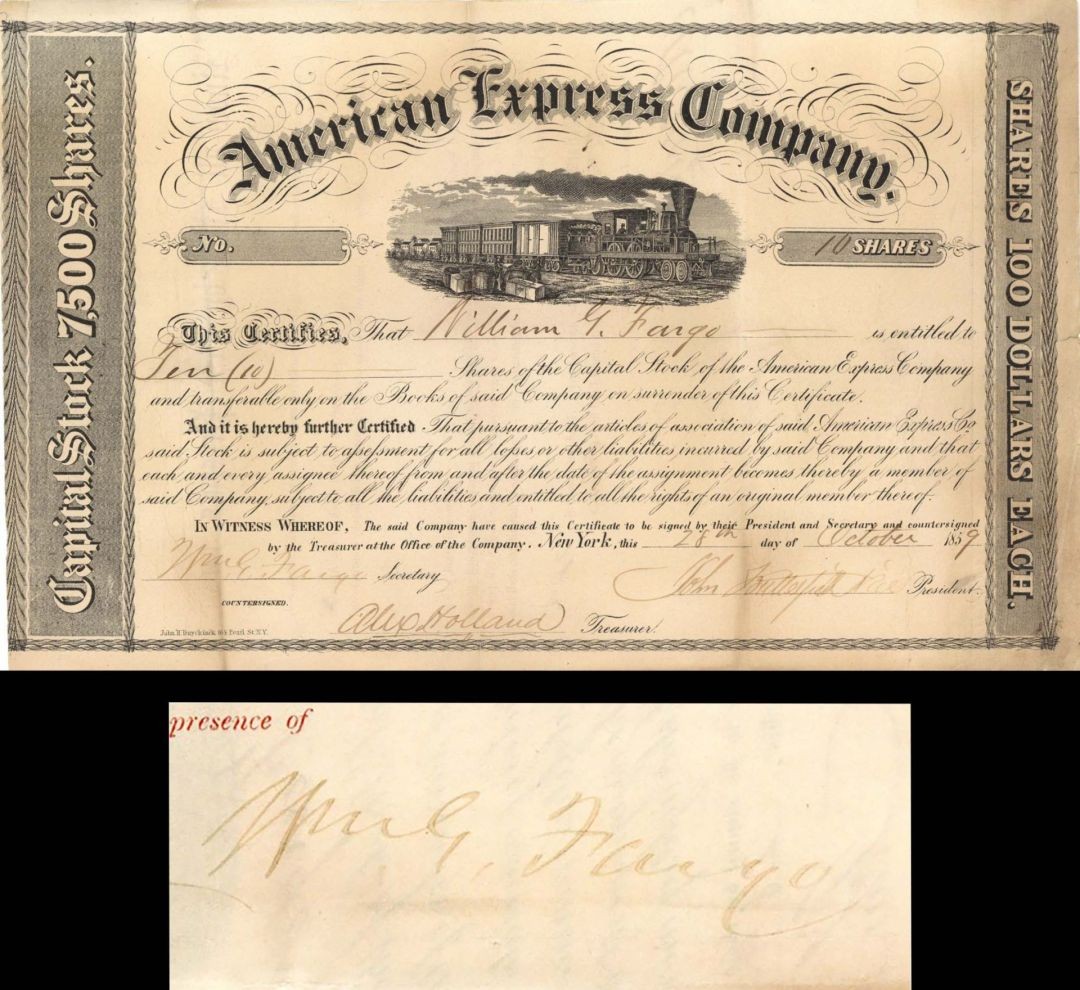 American Express Company.
Capital Stock 7,500 Shares.
SHARES 100 DOLLARS EACH.
No.
10 SHARES
This Certifies, That William G. Fargo is entitled to
Ten (10) Shares of the Capital Stock of the American Express Company
and transferable only on the Books of said Company on surrender of this Certificate.
And it is hereby further Certified. That pursuant to the articles of association of said American Express Co
said Stock is subject to assessment for all losses or other liabilities incurred by said Company and that
each and every assignee thereof from and after the date of the assignment becomes thereby a member of
said Company, subject to all the liabilities and entitled to all the rights of an original member thereof.
IN WITNESS WHEREOF, The said Company have caused this Certificate to be signed by their President and Secretary and countersigned
by the Treasurer at the Office of the Company. New York, this 28th day of October 1859
Wm G. Fargo Secretary
John Butterfield Vice President.
COUNTERSIGNED.
Alex Holland Treasurer.
John H Duyckinck 164 Pearl St. N.Y.
presence of
Wm G. Fargo